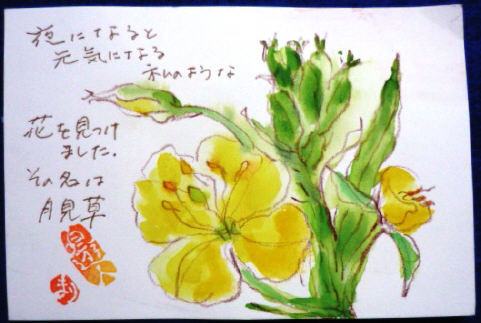 夜になると
元気になる
私のような
花を見つけ
ました.
その名は
月見草